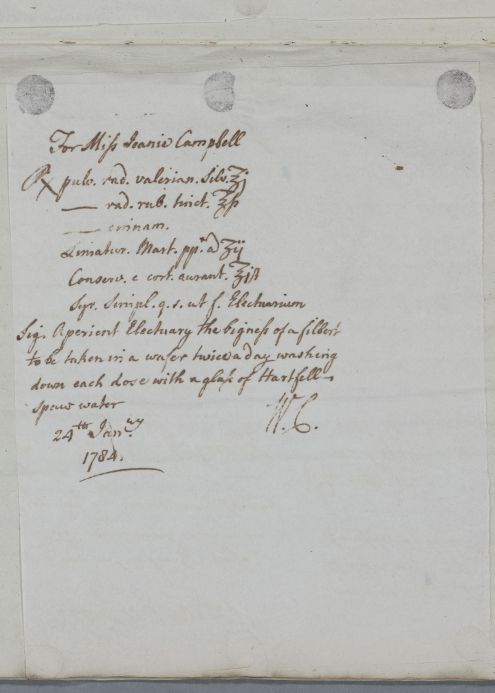 For Miss Jeanie Campbell
℞ pulv. rad. valerian. Silv. ℥j
—— rad. rub. tinct. ℥ß
—— cinnam.
Limatur. Mart. pp.ͭ a ʒij
Conserv. e cort. aurant. ℥jß
Syr. Simpl. q. s. ut f. Electuarium
Sig. Aperient Electuary the bigness of a filbert
to be taken in a wafer twice a day washing
down each dose with a glass of Hartfell
spaw water
W. C.
24th Janry
1784.